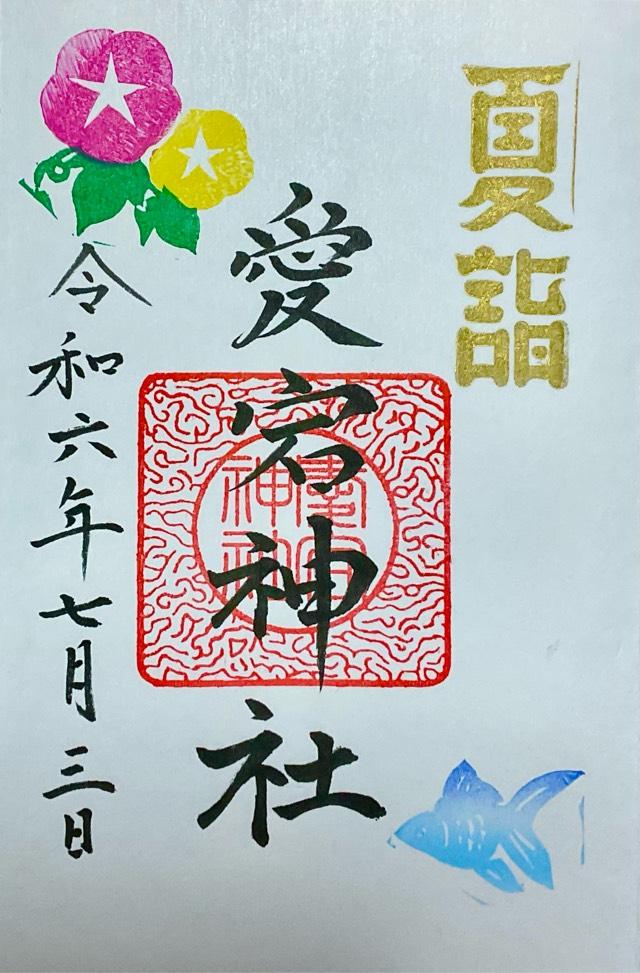 夏詣
愛宕神社
愛宕神社
令和六年七月三日